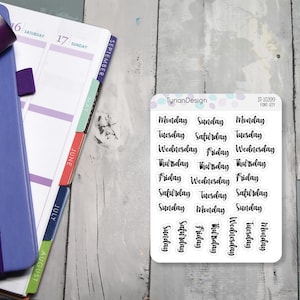 16 SATURDAY
17 SUNDAY
SEPTEMBER
JUNE
JULY
AUGUST
TyrianDesign
Monday Sunday Monday
Tuesday Saturday Tuesday
Wednesday Friday Wednesday
Thursday Thursday Thursday
Friday Wednesday Friday
Saturday Tuesday Saturday
Sunday Monday Sunday
Sunday Saturday Friday Thursday Wednesday Tuesday Monday